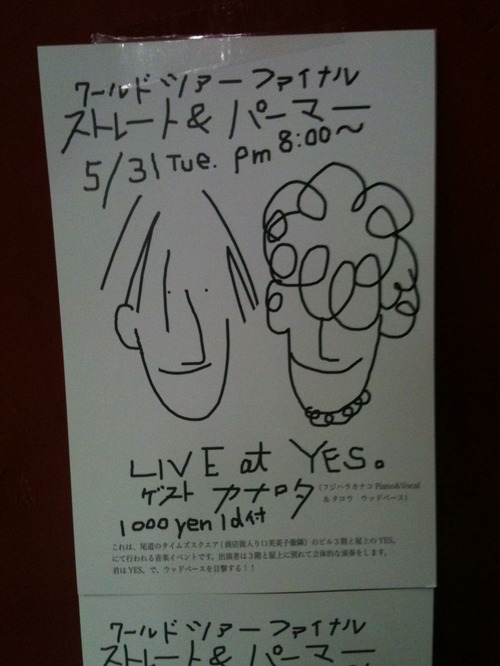 ワールドツアーファイナル
ストレート& パーマー
5/31 Tue. pm 8:00〜
LIVE at YES。
ゲスト カナロタ (フジハラカナコ Piano&Vocal
& タロウ ウッドベース)
1000 yen 1d付
これは、尾道のタイムズスクエア(商店街入り口芙美子像隣)のビル3階と屋上の YES。
にて行われる音楽イベントです。出演者は3階と屋上に別れて立体的な演奏をします。
君は YES。で、ウッドベースを目撃する!!
ワールドツアーファイナル
ストレート& パーマー